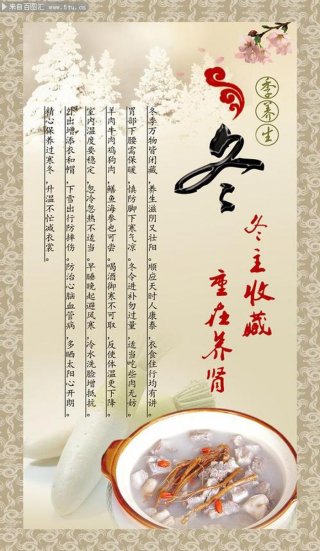 来自百图汇
www.5tu.cn
季养生
冬
冬主收藏
重在养肾
冬季万物皆闭藏,养生滋阴又壮阳。顺应天时人康泰,衣食住行均有讲。
胃部下腰需保暖,慎防脚下寒气凉。冬令进补勿过量,适当吃些肉无妨。
羊肉牛肉鸡狗肉,鳝鱼海参也可尝。喝酒御寒不可取,反使体温更下降。
室内温度要稳定,忽冷忽热不适当。早睡晚起避风寒,冷水洗脸增抵抗。
外出增添衣和帽,下雪出行防摔伤。防治心脑血管病,多晒太阳心开朗。
精心保养过寒冬,升温不忙减衣裳。